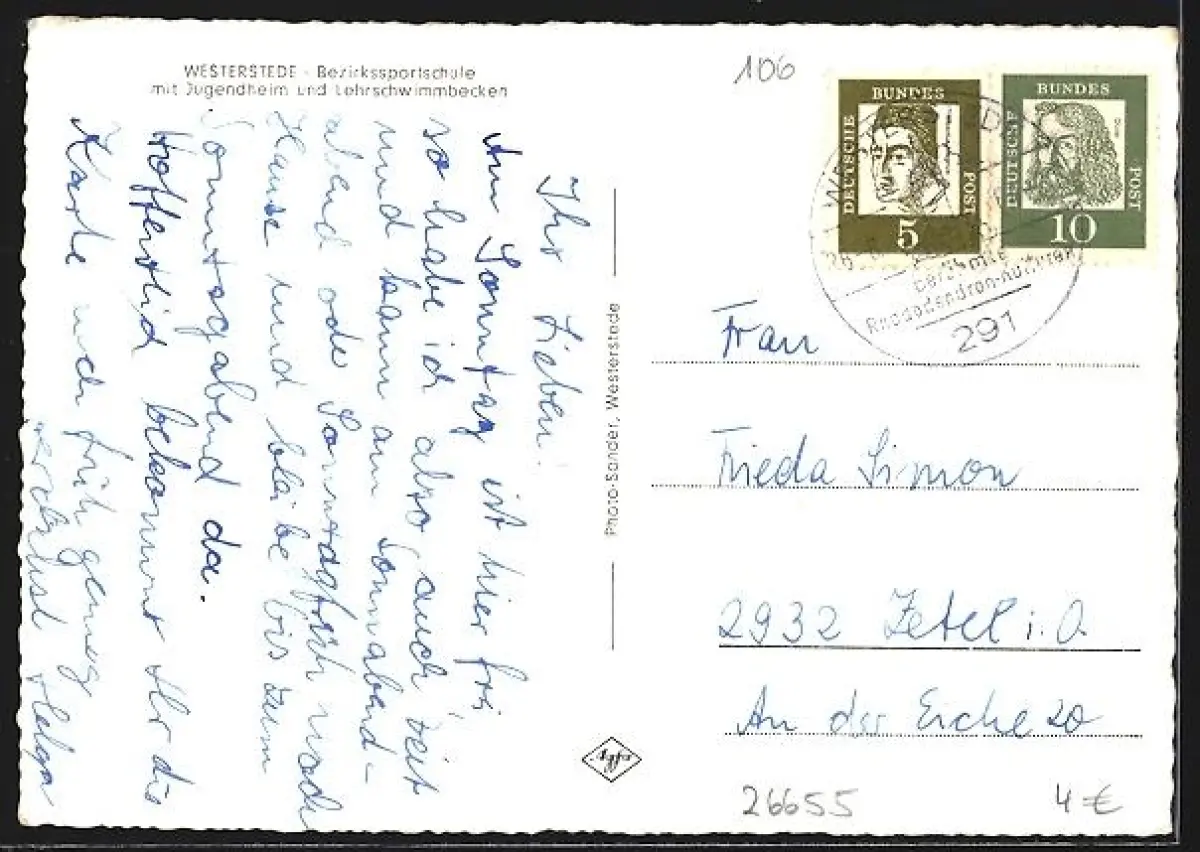 WESTERSTEDE - Bezirkssportschule
mit Jugendheim und Lehrschwimmbecken
Ihr Lieben!
Am Sonntag ist hier frei
so habe ich also auch Zeit
und kann am Sonnabend-
abend oder Sonntagfrüh nach
Hause und bleibe bis zum
Sonntagabend da.
Hoffentlich bekommt Ihr die
Karte noch früh genug
herzlichst Helga
Photo-Sander, Westerstede
Agfa
106
DEUTSCHE BUNDES POST
5
DEUTSCHE BUNDES POST
10
berühmte
Rhododendron-Kulturen
291
Frau
Frieda Simon
2932 Zetel i. O.
An der Eiche 20
26655
4 €